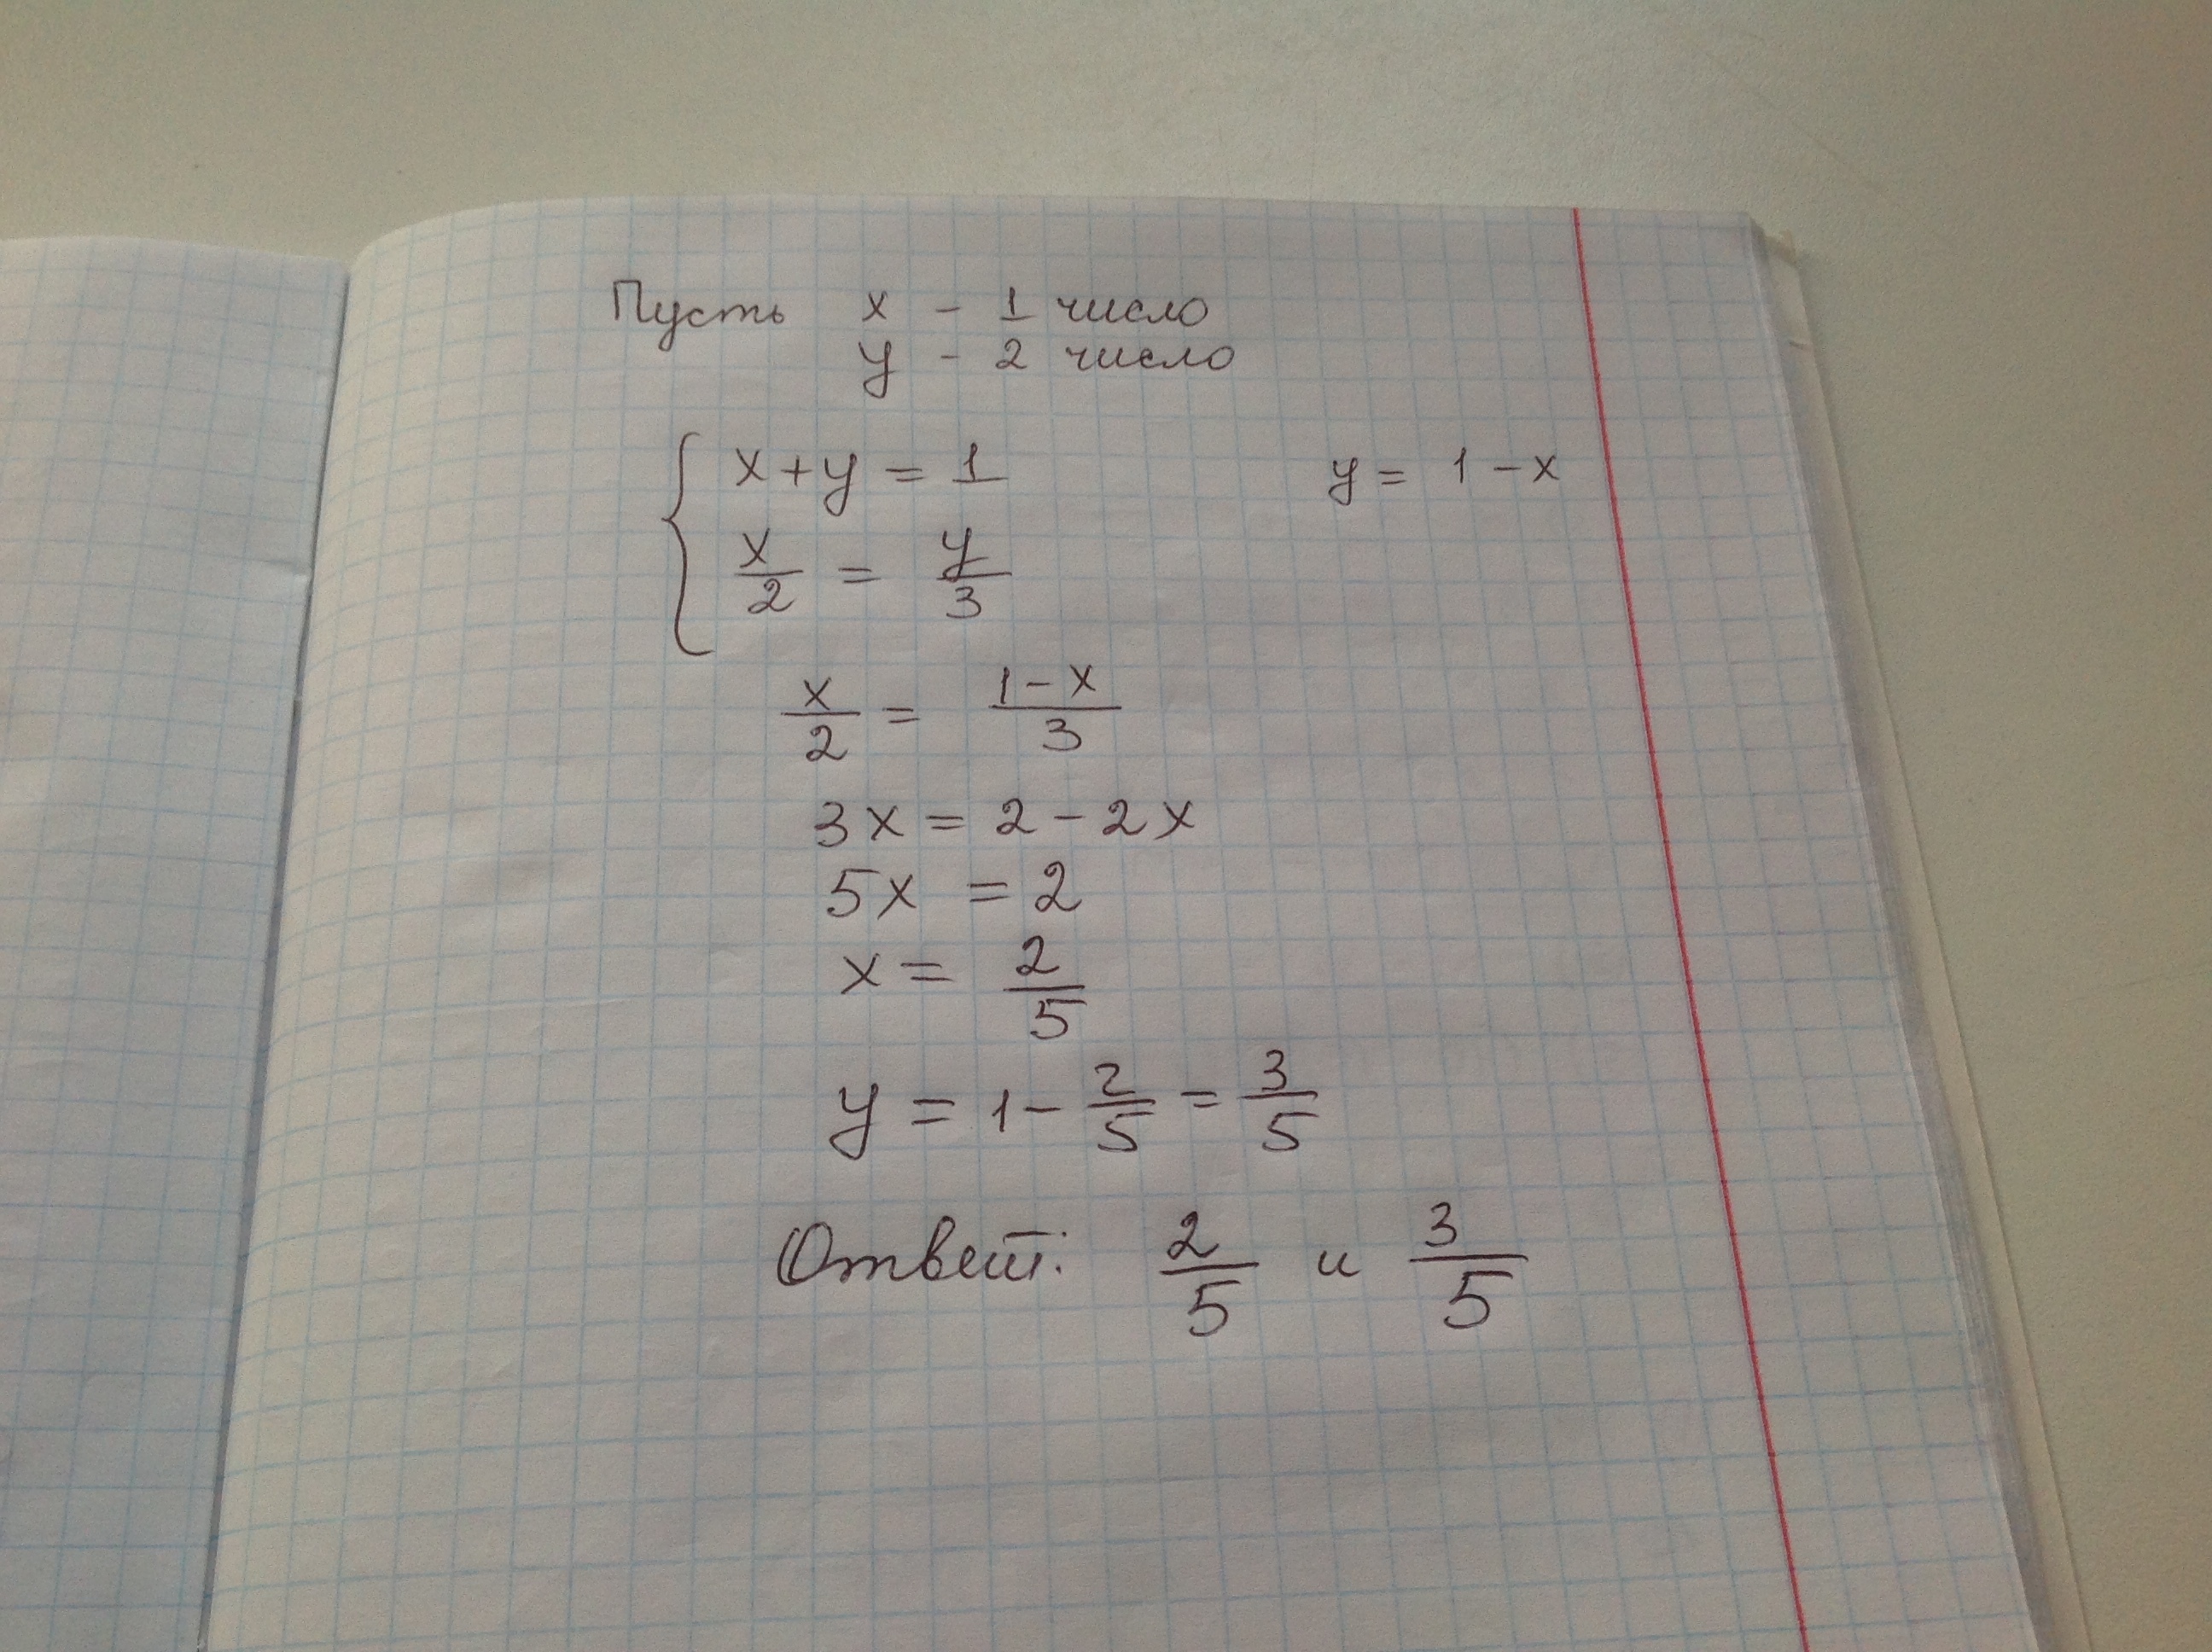 Пусть x - 1 число
y - 2 число
x+y = 1
y = 1 - x
x/2 = y/3
x/2 = 1-x/3
3x = 2 - 2x
5x = 2
x = 2/5
y = 1 - 2/5 = 3/5
Ответ: 2/5 и 3/5